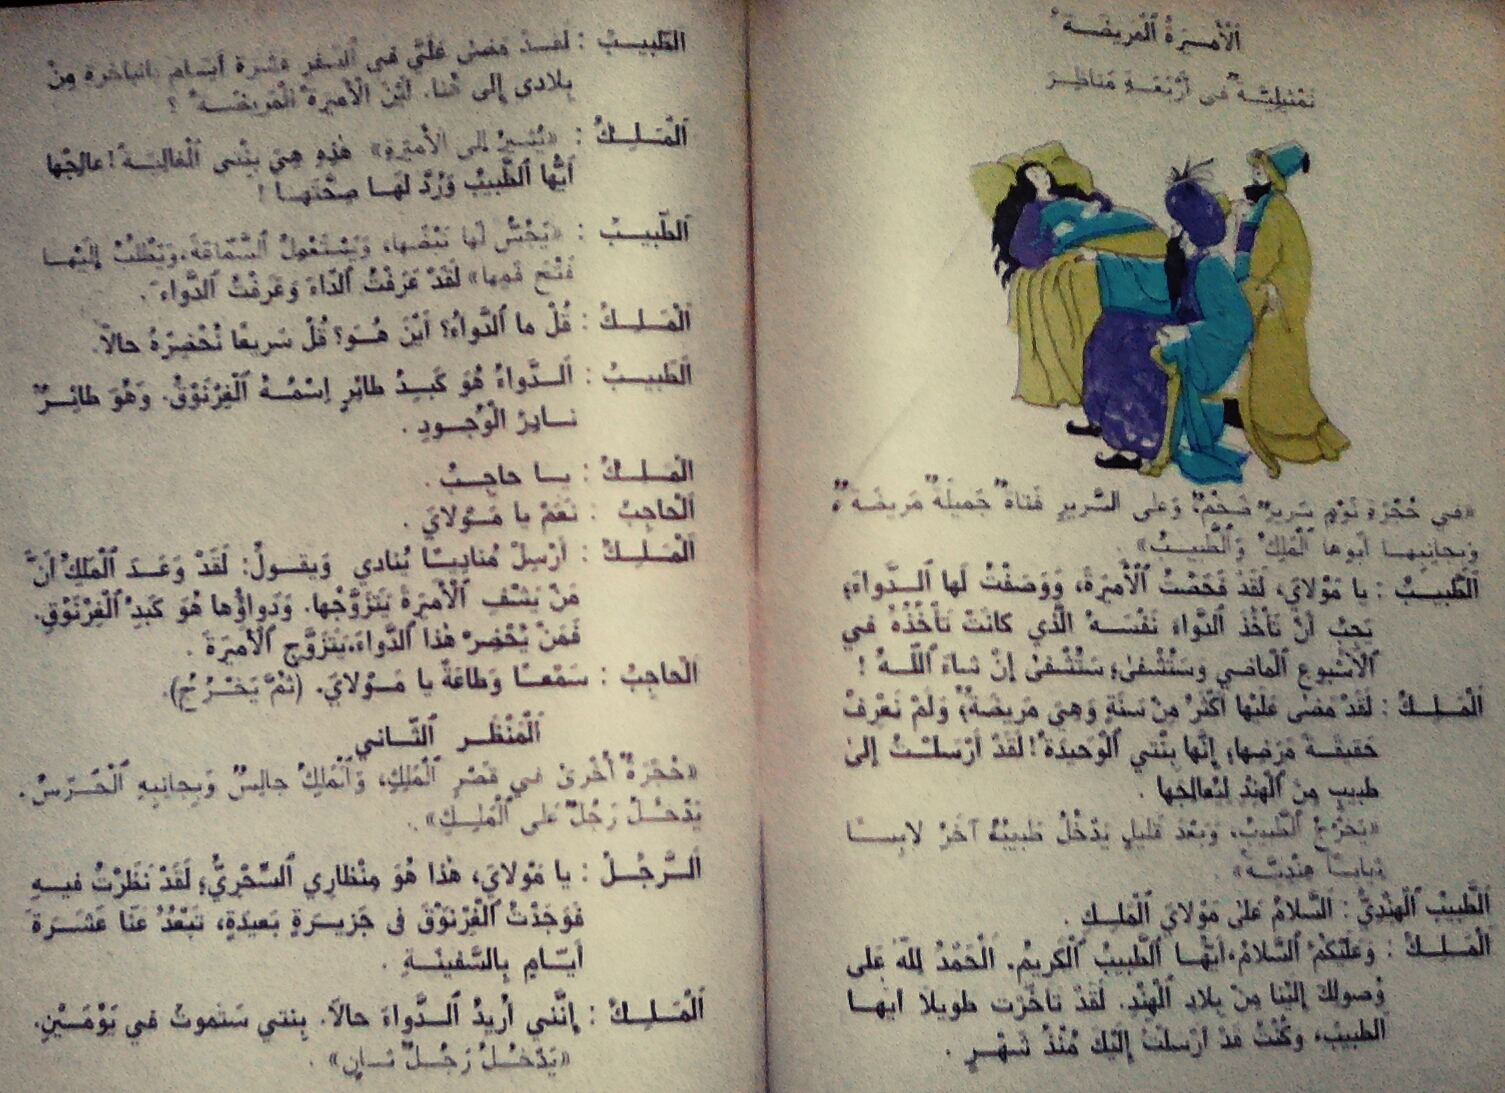 اَلْأَمِيرَةُ اَلْمَرِيضَةُ
تَمْثِيلِيَّةٌ فِى أَرْبَعَةِ مَناظِرَ
«فِي حُجْرَةِ نَوْمٍ سَرِيرٌ ضَخْمٌ؛ وَعَلى السَّرِيرِ فَتاةٌ جَمِيلَةٌ مَرِيضَةٌ؛
وَبِجانِبِهــا أَبُوها اَلْمَلِكُ وَالطَّبِيــبُ».
اَلطَّبِيــبُ : يا مَوْلايَ، لَقَدْ فَحَصْتُ اَلْأَمِيرَةَ، وَوَصَفْتُ لَها اَلــدَّواءَ؛
يَجِبُ أَنْ تَأْخُذَ اَلدَّواءَ نَفْسَــهُ الَّذي كانَتْ تَأْخُذُهُ في
اَلْأُسْبُوعِ اَلْماضي وَسَتُشْفى؛ سَتُشْفى إِنْ شــاءَ اَللّــهُ !
اَلْمَــلِــكُ : لَقَدْ مَضى عَلَيْها أَكْثَرُ مِنْ سَنَةٍ وَهِيَ مَرِيضَةٌ؛ وَلَمْ نَعْرِفْ
حَقِيقَــةَ مَرَضِها؛ إِنَّها بِنْتي اَلْوَحِيدَةُ! لَقَدْ أَرْسَلْــتُ إِلى
طَبِيبٍ مِنَ اَلْهِنْدِ لِيُعالِجَها .
«يَخْرُجُ اَلطَّبِيبُ، وَبَعْدَ قَلِيلٍ يَدْخُلُ طَبِيبٌ آخَرُ لابِســًا
ثِيابــًا هِنْدِيَّــةً» .
اَلطَّبِيبُ اَلْهِنْدِيُّ : اَلسَّلامُ عَلى مَوْلايَ اَلْمَلِــكِ .
اَلْمَــلِــكُ : وَعَلَيْكُمُ اَلسَّلامُ، أَيُّهــا اَلطَّبِيبُ اَلْكَرِيمُ. اَلْحَمْدُ لِلّهِ عَلى
وُصولِكَ إِلَيْنا مِنْ بِلادِ اَلْهِنْدِ. لَقَدْ تَأَخَّرْتَ طَويلاً أَيُّهــا
الطَّبِيبُ، وَكُنْتُ قَدْ أَرْسَلْتُ إِلَيْكَ مُنْذُ شَهْــرٍ .
اَلطَّبِيــبُ : لَقَــدْ مَضى عَلَيَّ فِي اَلسَّفَرِ عَشَرَةُ أَيّــامٍ بِالباخِرَةِ مِنْ
بِلادى إِلى هُنا. أَيْنَ اَلْأَمِيرَةُ اَلْمَرِيضَــةُ ؟
اَلْمَــلِــكُ : «يُشِيرُ إِلى اَلْأَمِيرَةِ» هٰذِهِ هِيَ بِنْتى اَلْغالِيَــةُ! عالِجْها
أَيُّها اَلطَّبِيبُ وَرُدَّ لَهــا صِحَّتَهــا !
اَلطَّبِيــبُ : «يَجُسُّ لَها نَبْضَها، وَيَسْتَعْمِلُ اَلسَّمّاعَةَ، وَيَطْلُبُ إِلَيْهــا
فَتْحَ فَمِها» لَقَدْ عَرَفْتُ اَلدّاءَ وَعَرَفْتُ اَلدَّواءَ.
اَلْمَــلِــكُ : قُلْ ما اَلدَّواءُ؟ أَيْنَ هُــوَ؟ قُلْ سَرِيعًا نُحْضِرْهُ حالًا.
اَلطَّبِيــبُ : اَلــدَّواءُ هُوَ كَبِــدُ طائِرٍ اِسْمُــهُ اَلْغِرْنَوْقُ. وَهُوَ طائِــرٌ
نــادِرُ الْوُجُــودِ .
اَلْمَــلِــكُ : يــا حاجِــبُ .
اَلْحاجِبُ : نَعَمْ يا مَــوْلايَ .
اَلْمَــلِــكُ : أَرْسِلْ مُنادِيــًا يُنادي وَيَقــولُ: لَقَدْ وَعَــدَ اَلْمَلِكُ أَنَّ
مَنْ يَشْفِ اَلْأَمِيرَةَ يَتَزَوَّجْها. وَدَواؤُها هُوَ كَبِدُ اَلْغِرْنَوْقِ.
فَمَنْ يُحْضِرْ هٰذا اَلدَّواءَ، يَتَزَوَّجِ اَلْأَمِيرَةَ .
اَلْحاجِبُ : سَمْعــًا وَطاعَةً يا مَــوْلايَ. (ثُمَّ يَخْــرُجُ).
اَلْمَنْظَــر اَلثّــاني
«حُجْرَةٌ أُخْرى فــي قَصْرِ اَلْمَلِكِ، وَاَلْمَلِكُ جالِسٌ وَبِجانِبِهِ اَلْحَــرَسُ.
يَدْخُــلُ رَجُلٌ عَلى اَلْمَلِــكِ» .
اَلــرَّجُــلُ : يا مَوْلايَ، هٰذا هُوَ مِنْظاري اَلسِّحْرِيُّ؛ لَقَدْ نَظَرْتُ فيــهِ
فَوَجَدْتُ اَلْغِرْنَوْقَ فى جَزيــرَةٍ بَعيدَةٍ، تَبْعُدُ عَنّا عَشَــرَةَ
أَيّــامٍ بِالسَّفينَــةِ .
اَلْمَــلِــكُ : إِنَّني أُرِيدُ اَلــدَّواءَ حالًا. بِنْتي سَتَموتُ في يَوْمَــيْنِ.
«يَدْخُــلُ رَجُــلٌ ثــانٍ» .